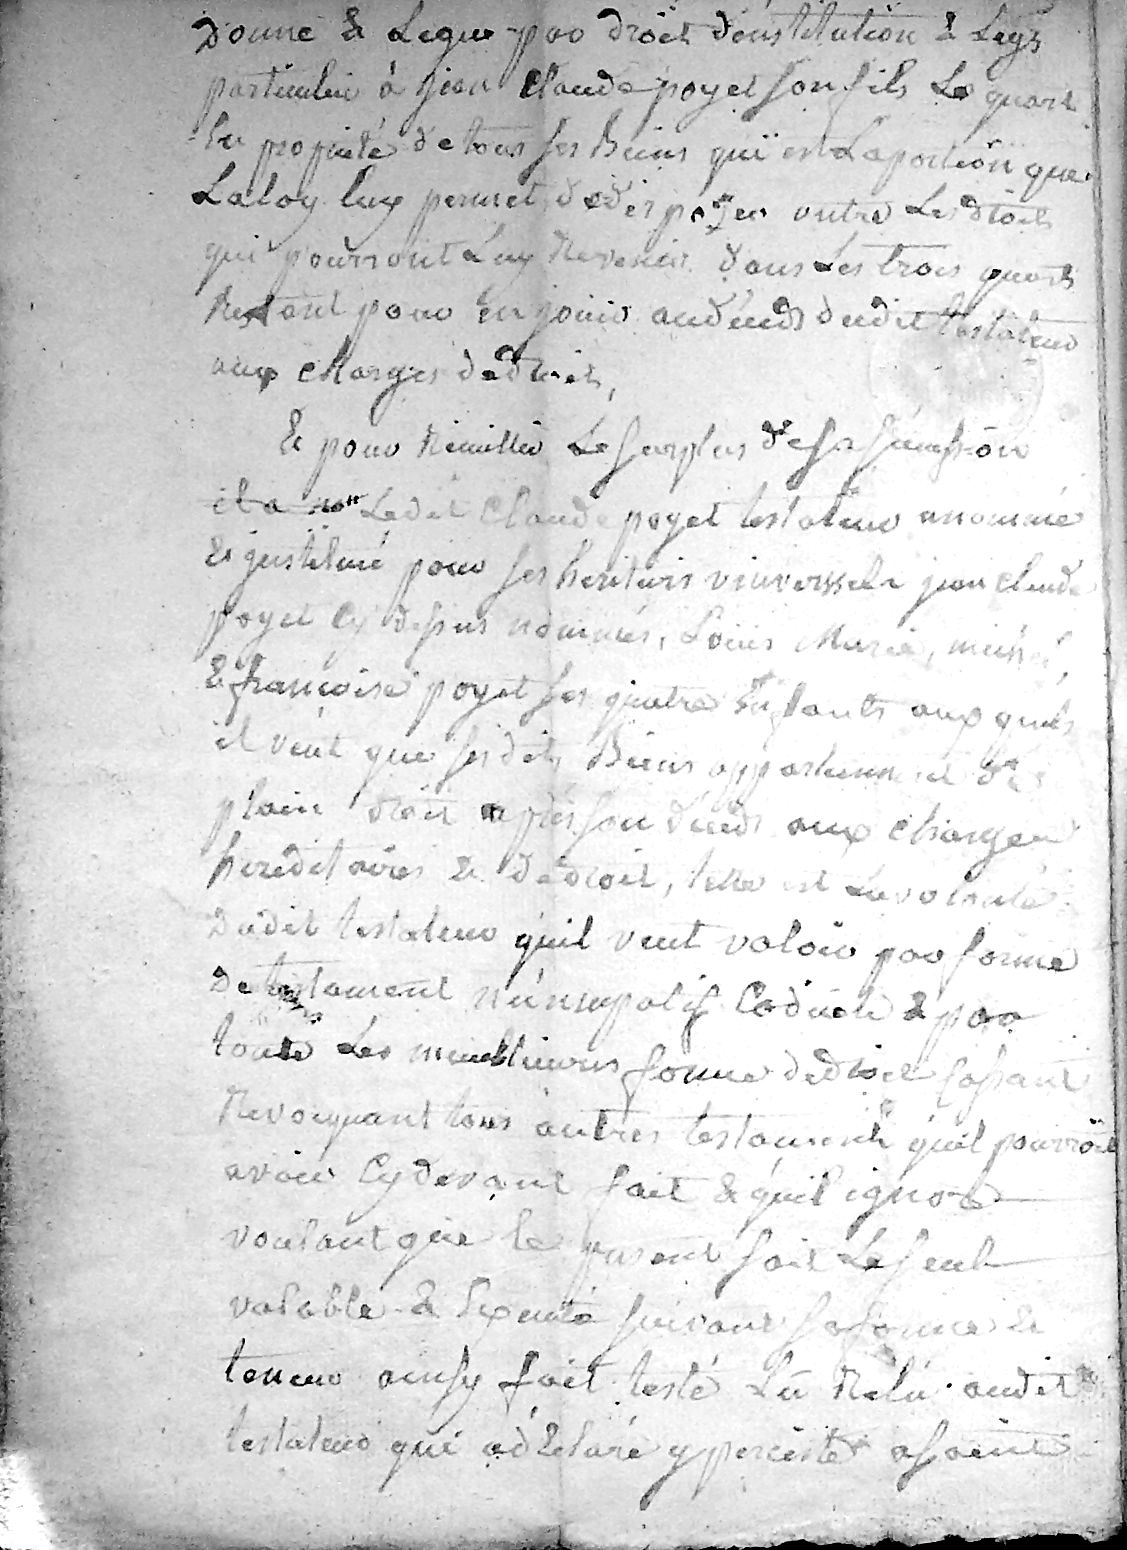 donne & Legue par droit d'institution & Legs
particulier á jean Claude poyet son fils Le quart
En propriété de tous ses Biens qui est La portion que
La loy luy permet de disposer outre Les droits
qui pourront Luy Revenir dans Les trois quarts
Restant pour En jouir au décéds dudit testateur
aux charges de droit,
& pour Recuillir Le surplus de sa succession
il a Ledit Claude poyet testateur a nommé
& jnstitué pour ses heritiers vniverssels jean Claude
poyet Cy dessus nommés, Loüis Marie, michel,
& françoise poyet ses quatre Enfants aux quels
il veut que ses dits Biens appartiennent de
plain droit après son décéds aux charges
héréditaires & de droit, telle est La volonté
Dudit testateur qu'il veut valoir par forme
De testament nuncupatif Codicile & par
toute Les meullieures forme de droit Cassant
Revocquant tous autres testaments qu'il pourroit
avoir Cy devant fait & qu'il ignore
voulant que le présent soit Le seul
valable & Exécuté suivant sa forme &
teneur ainsy fait testé Lû Relû audit
testateur qui a déclaré y perciste